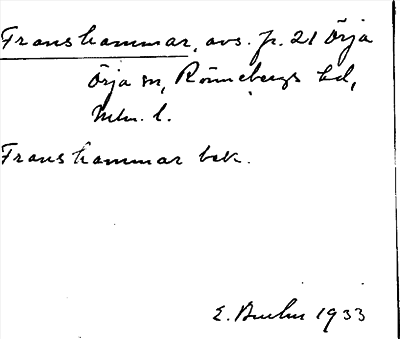 Franshammar, avs. fr. 21 Örja
Örja sn, Rönnebergs hd,
Mlm. l.
Franshammar bek.
E. 1933